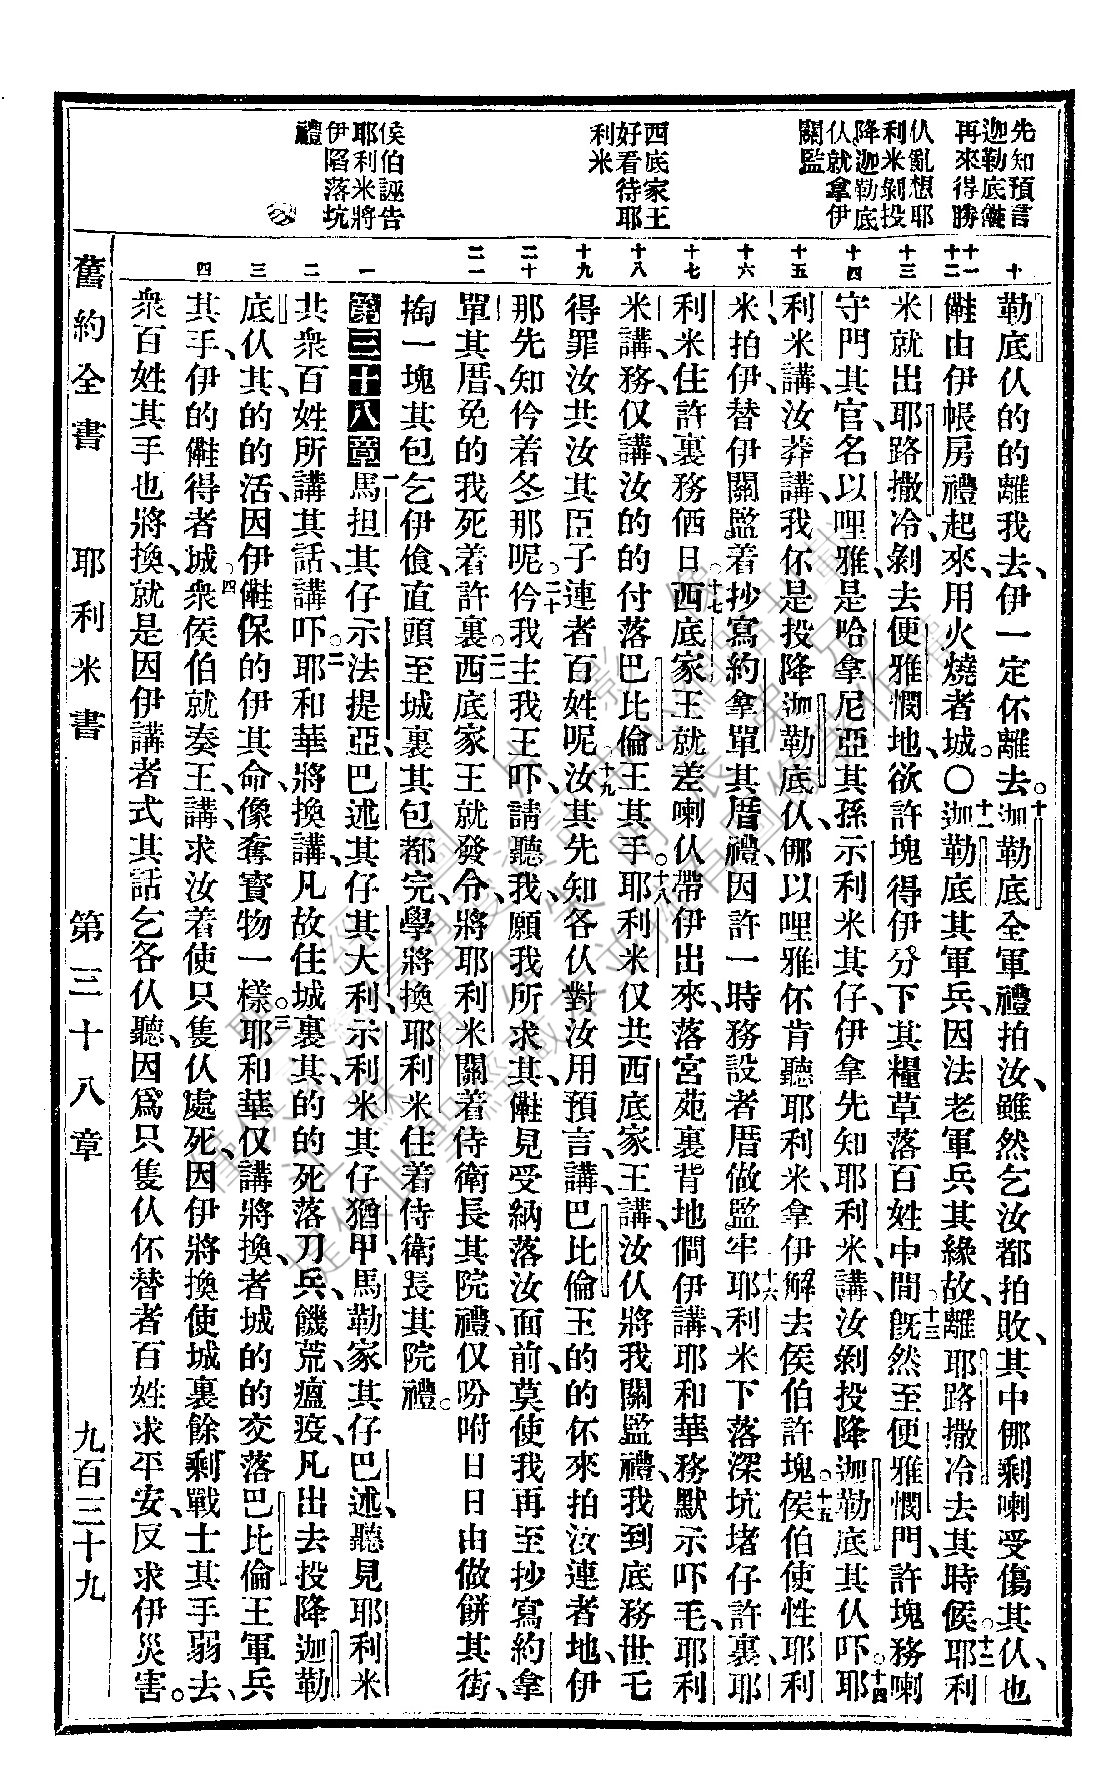 先知預言
迦勒底儺
再來得勝
仈亂想耶
利米剝投
降迦勒底
仈就拿伊
關監
西底家王
好看待耶
利米
侯伯誣告
耶利米將
伊陷落坑
禮
十
十一
十二
十三
十四
十五
十六
十七
十八
十九
二十
二一
一
二
三
四
勒底仈的的離我去、伊一定伓離去。十迦勒底全軍禮拍汝、雖然乞汝都拍敗、其中㑚剩喇受傷其仈、也
由伊帳房禮起來、用火燒者城。〇十一迦勒底其軍兵、因法老軍兵其緣故、離耶路撒冷去其時候。十二耶利
米就出耶路撒冷、剝去便雅憫地、欲許塊得伊分下其糧草落百姓中間。十三旣然至便雅憫門、許塊務喇
守門其官、名以哩雅、是哈拿尼亞其孫示利米其仔、伊拿先知耶利米、講、汝剝投降迦勒底其仈吓。十四耶
利米講、汝莽講、我伓是投降迦勒底仈、㑚以哩雅伓肯聽耶利米、拿伊解去侯伯許塊。十五侯伯使性耶利
米、拍伊、替伊關監着抄寫約拿單其厝禮、因許一時務設者厝做監牢。十六耶利米下落深坑堵仔許裏、耶
利米住許裏務価日。十七西底家王就差喇仈帶伊出來、落宮苑裏背地倜伊講、耶和華務默示吓毛、耶利
米講、務、仅講、汝的的付落巴比倫王其手。十八耶利米仅共西底家王講、汝仈將我關監禮、我到底務世乇
得罪汝共汝其臣子連者百姓呢。十九汝其先知各仈對汝用預言講、巴比倫王的的伓來拍汝連者地、伊
那先知仱着冬那呢。二十仱我主我王吓、請聽我、願我所求其、見受納落汝面前、莫使我再至抄寫約拿
單其厝、免的我死着許裏。二一西底家王就發令、將耶利米關着侍衛長其院禮、仅吩咐日日由做餠其街、
掏一塊其包乞伊飧、直頭至城裏其包都完、學將換耶利米住着侍衛長其院禮。
第三十八章 一馬担其仔示法提亞、巴述其仔其大利、示利米其仔猶甲、馬勒家其仔巴述、聽見耶利米
共衆百姓所講其話、講吓。二耶和華將換講、凡故住城裏其、的的死落刀兵、饑荒、瘟疫、凡出去投降迦勒
底仈其、的的活、因伊保的伊其命、像奪寶物一樣。三耶和華仅講將換、者城的的交落巴比倫王軍兵
其手、伊的得者城。四衆侯伯就奏王、講、求汝着使只隻仈處死、因伊將換使城裏餘剩戰士其手弱去、
衆百姓其手也將換、就是因伊講者式其話乞各仈聽、因爲只隻仈伓替者百姓求平安、反求伊災害。
舊約全書 耶利米書 第三十八章 九百三十九